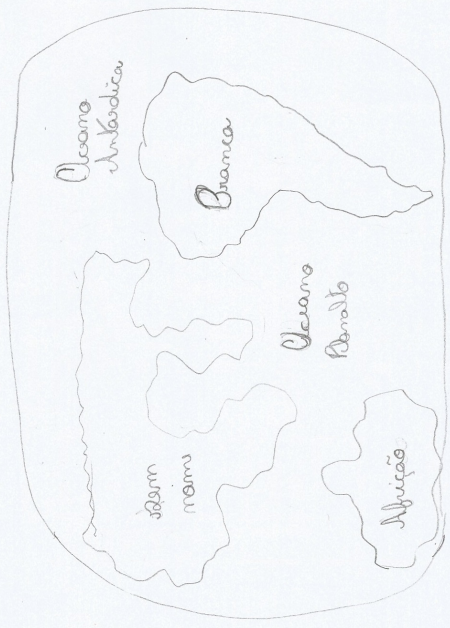 Oceano
Antardica
Branca
Oceano
Planalto
Sem
nome
Africão